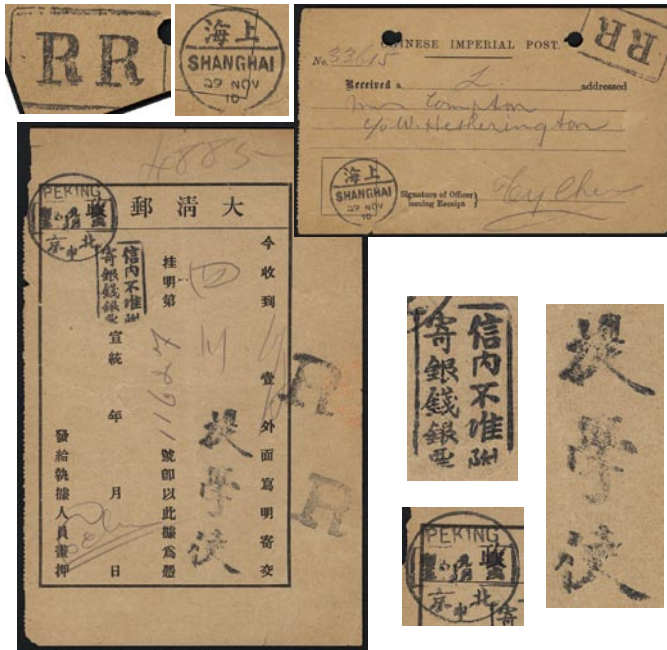 RR
上海
SHANGHAI
29 NOV
10
CHINESE IMPERIAL POST.
RR
No. 33615
Received a L. addressed
Miss Compton
c/o W. Hetherington
上海
SHANGHAI
29 NOV
10
Signature of Officer
issuing Receipt
4885
PEKING
北京
大清郵政
今收到 壹 外面寫明寄交
四川
提學使
挂明第 11627 號卽以此據爲憑
信內不准附
寄銀錢銀票
宣統 年 月 日
發給執據人員畫押
R
R
信內不准附
寄銀錢銀票
提學使
PEKING
政
北京